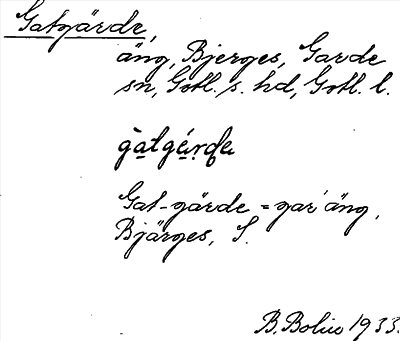 Gatgärde,
äng, Bjerges, Garde
sn, Gotl. s. hd, Gotl. l.
Gat-gärde = äng,
Bjärges, S.
B. Bolin 1933.